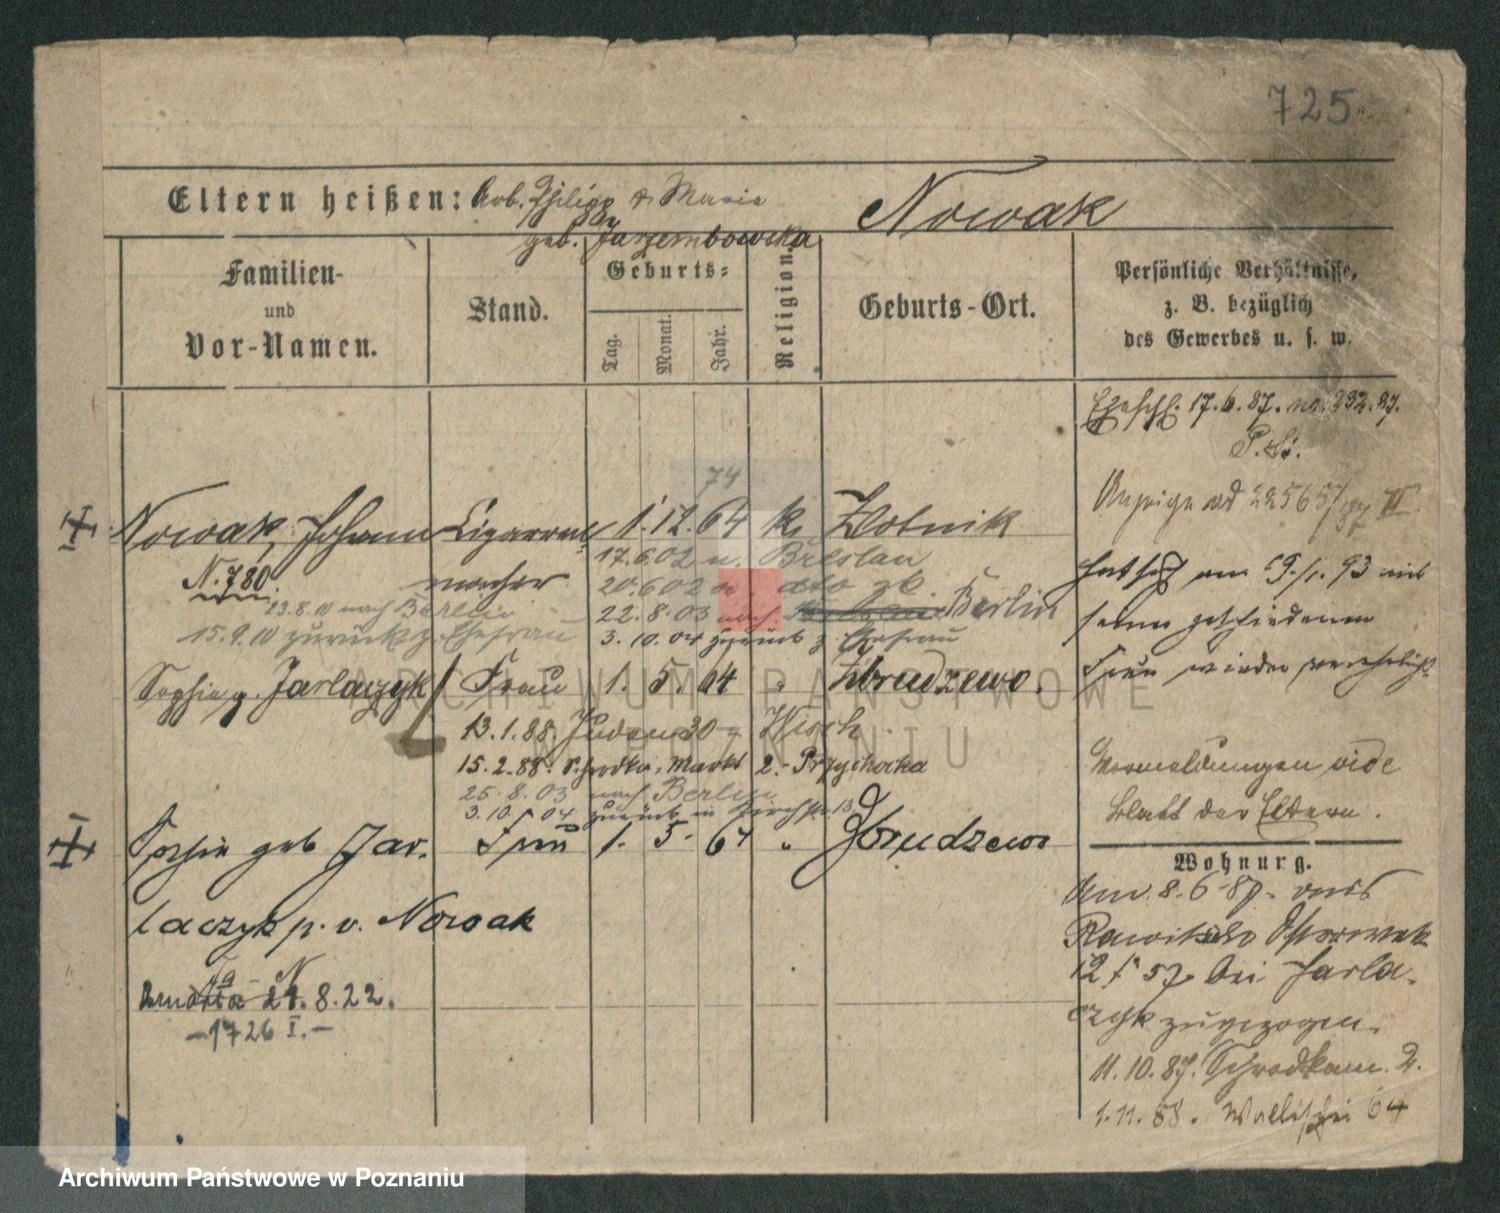 725.
Eltern heißen: Arb. Philipp & Marie
geb. Jarzembowska
Nowak
Familien-
und
Vor-Namen.
Stand.
Geburts-
Tag.
Monat.
Jahr.
Religion.
Geburts-Ort.
Persönliche Verhältnisse,
z. B. bezüglich
des Gewerbes u. s. w.
Eheschl. 17.6.87. no. 232.87.
P. St.
Anzeige ad 22565/87 II
74
Nowak, Johann Cigarren 1. 12. 64 k. Zlotnik
macher
N. 780.
17.6.02 n. Breslau
20.6.02 dto zk.
22.8.03 nach Berlin
3.10.04 zurück z. Ehefrau
23.8.10 nach Berlin
15.9.10 zurück z. Ehefrau
hat sich am 19./1. 93 mit
seiner geschiedenen
Frau wieder verehelicht
Sophie g. Jarlaczyk Frau 1. 5. 64 " Zbrudzewo.
13.1.88. Juden 30 - Wisch
15.2.88. Schrodka, Markt 2. - Przychocka
25.8.03 nach Berlin
3.10.04 zurück in
Vormeldungen vide
Blatt der Eltern.
Sophie geb Jar- Frau 1. 5. 64 " Zbrudzewo
laczyk p. v. Nowak
21.8.22.
-1726 I.-
Wohnung.
Am 8.6.87. aus
Rawitsch
12 f. 57 bei Jarla-
czyk zugezogen.
11.10.87. Schrodkam. 2.
1.11.88. Wallischei 64
ARCHIWUM PAŃSTWOWE
W POZNANIU
Archiwum Państwowe w Poznaniu